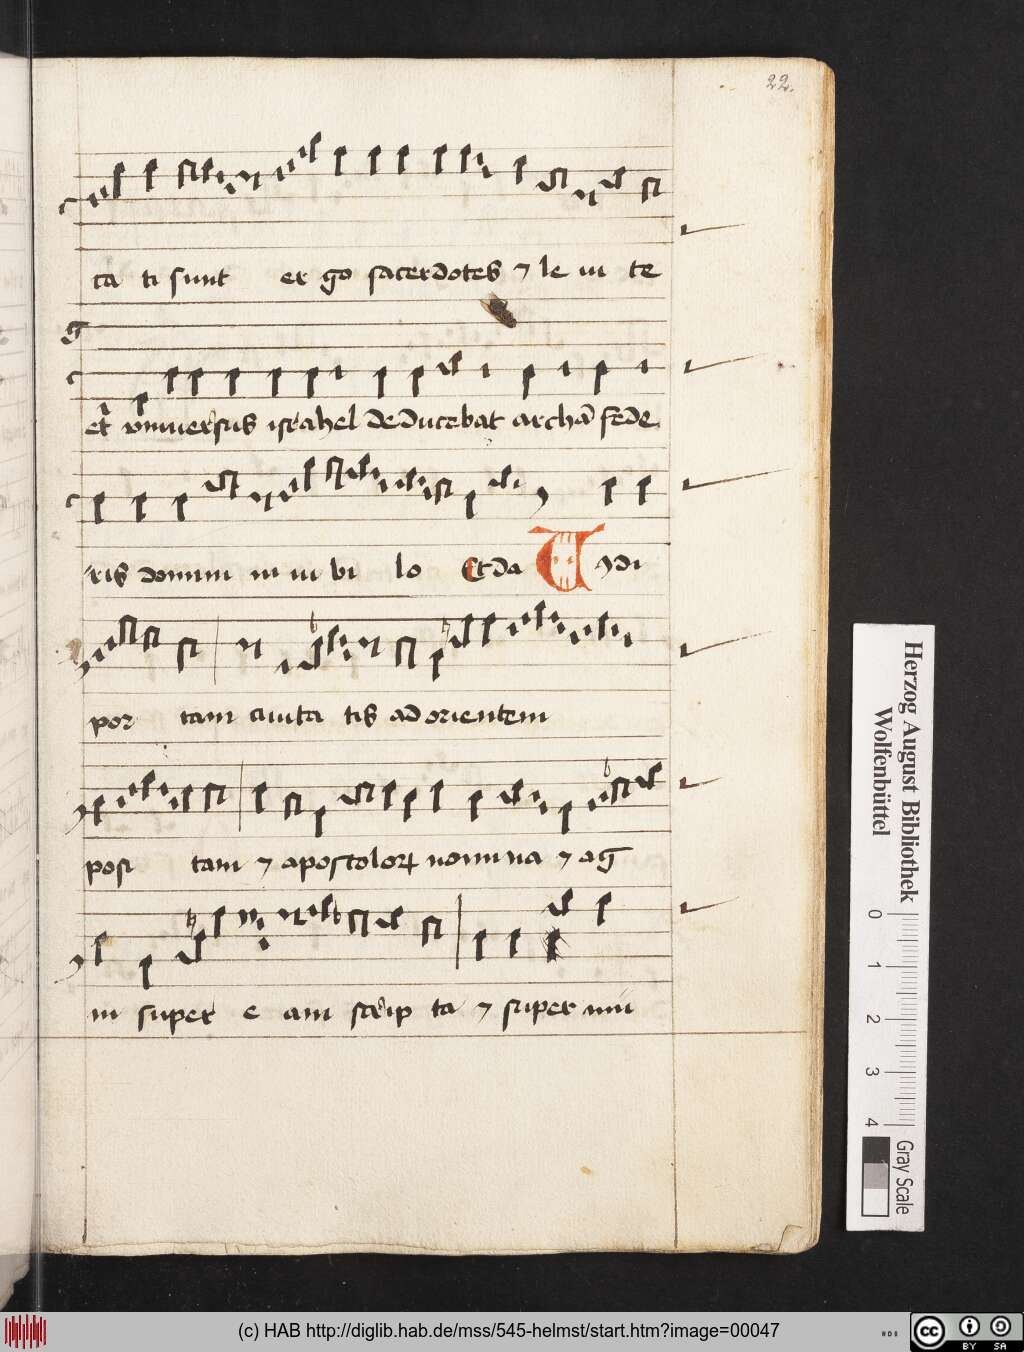 22.
ta ti sunt er go sacerdotes ⁊ le ui te
et vniuersus israhel deducebat archā fede
ris domini in iu bi lo Et da U ⁊di
por tam ciuita tis ad orientem
posi tam ⁊ apostolorꝝ nomina ⁊ ag
in super e am scrip ta ⁊ super mu
Herzog August Bibliothek
Wolfenbüttel
0 1 2 3 4
Gray Scale
(c) HAB http://diglib.hab.de/mss/545-helmst/start.htm?image=00047
cc BY SA